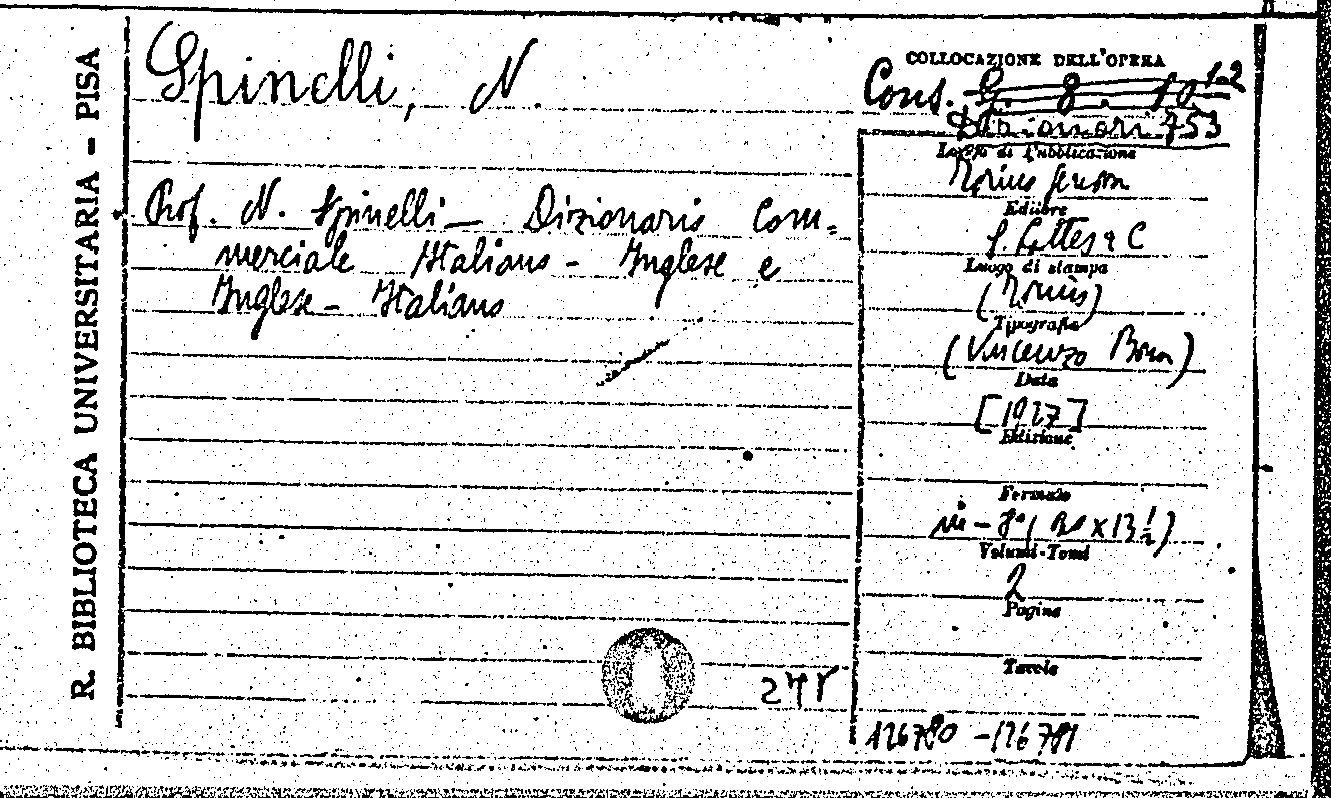 R. BIBLIOTECA UNIVERSITARIA - PISA
Spinelli, N.
Prof. N. Spinelli — Dizionario Com=
merciale Italiano - Inglese e
Inglese - Italiano
COLLOCAZIONE DELL'OPERA
Cons. G. 8. 10 1-2
Dizionari 753
Luogo di Pubblicazione
Editore
S. Lattes & C
Luogo di stampa
(Torino)
Tipografia
(Vincenzo Bona)
Data
[1927]
Edizione
Formato
in - 8° (20 x 13 1/2)
Volumi-Tomi
2
Pagine
Tavole
126780 - 126781